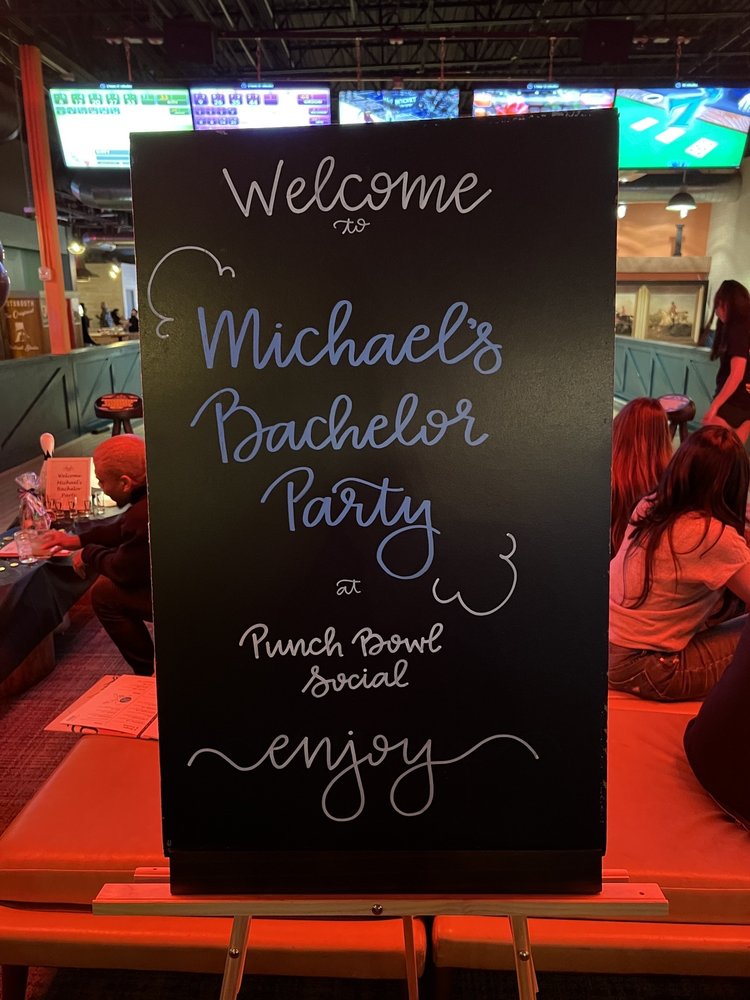 Welcome
to
Michael's
Bachelor
Party
at
Punch Bowl
Social
enjoy
Welcome
Michael's
Bachelor
Party